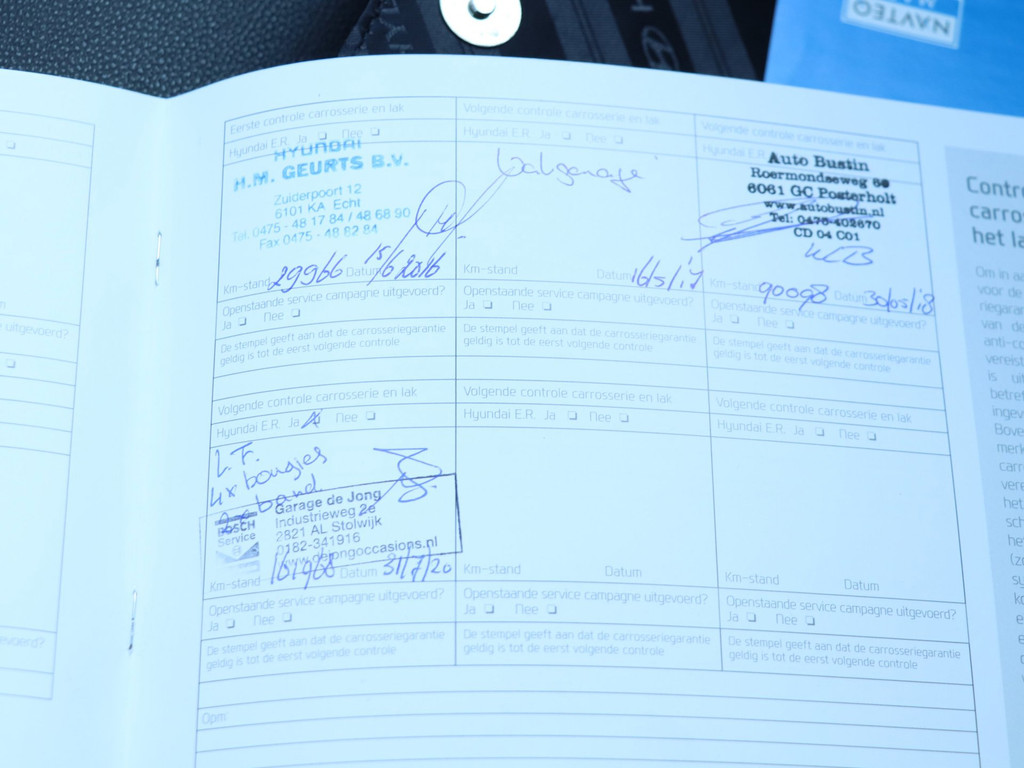 NAVTEQ
Eerste controle carrosserie en lak
Hyundai E.R. Ja ❏ Nee ❏
HYUNDAI
H.M. GEURTS B.V.
Zuiderpoort 12
6101 KA Echt
Tel. 0475 - 48 17 84 / 48 68 90
Fax 0475 - 48 82 84
Km-stand 29966 Datum 15/6 2016
Openstaande service campagne uitgevoerd?
Ja ❏ Nee ❏
De stempel geeft aan dat de carrosseriegarantie
geldig is tot de eerst volgende controle
Volgende controle carrosserie en lak
Hyundai E.R. Ja ❏ Nee ❏
Km-stand Datum 16/5/17
Openstaande service campagne uitgevoerd?
Ja ❏ Nee ❏
De stempel geeft aan dat de carrosseriegarantie
geldig is tot de eerst volgende controle
Volgende controle carrosserie en lak
Hyundai E.R.
Auto Bustin
Roermondseweg
6061 GC Posterholt
www.autobustin.nl
Tel: 0475-402670
CD 04 C01
Km-stand 90098 Datum 30/05/18
Openstaande service campagne uitgevoerd?
Ja ❏ Nee ❏
De stempel geeft aan dat de carrosseriegarantie
geldig is tot de eerst volgende controle
Volgende controle carrosserie en lak
Hyundai E.R. Ja ❏ Nee ❏
L.F.
4x bougies
band
BOSCH
Service
Garage de Jong
Industrieweg 2e
2821 AL Stolwijk
0182-341916
www.dejongoccasions.nl
Km-stand 161968 Datum 31/7/20
Openstaande service campagne uitgevoerd?
Ja ❏ Nee ❏
De stempel geeft aan dat de carrosseriegarantie
geldig is tot de eerst volgende controle
Volgende controle carrosserie en lak
Hyundai E.R. Ja ❏ Nee ❏
Km-stand Datum
Openstaande service campagne uitgevoerd?
Ja ❏ Nee ❏
De stempel geeft aan dat de carrosseriegarantie
geldig is tot de eerst volgende controle
Volgende controle carrosserie en lak
Hyundai E.R. Ja ❏ Nee ❏
Km-stand Datum
Openstaande service campagne uitgevoerd?
Ja ❏ Nee ❏
De stempel geeft aan dat de carrosseriegarantie
geldig is tot de eerst volgende controle
Opm:
Contro
carros
het la
Om in aa
voor de
van de
anti-co
vereist
is uit